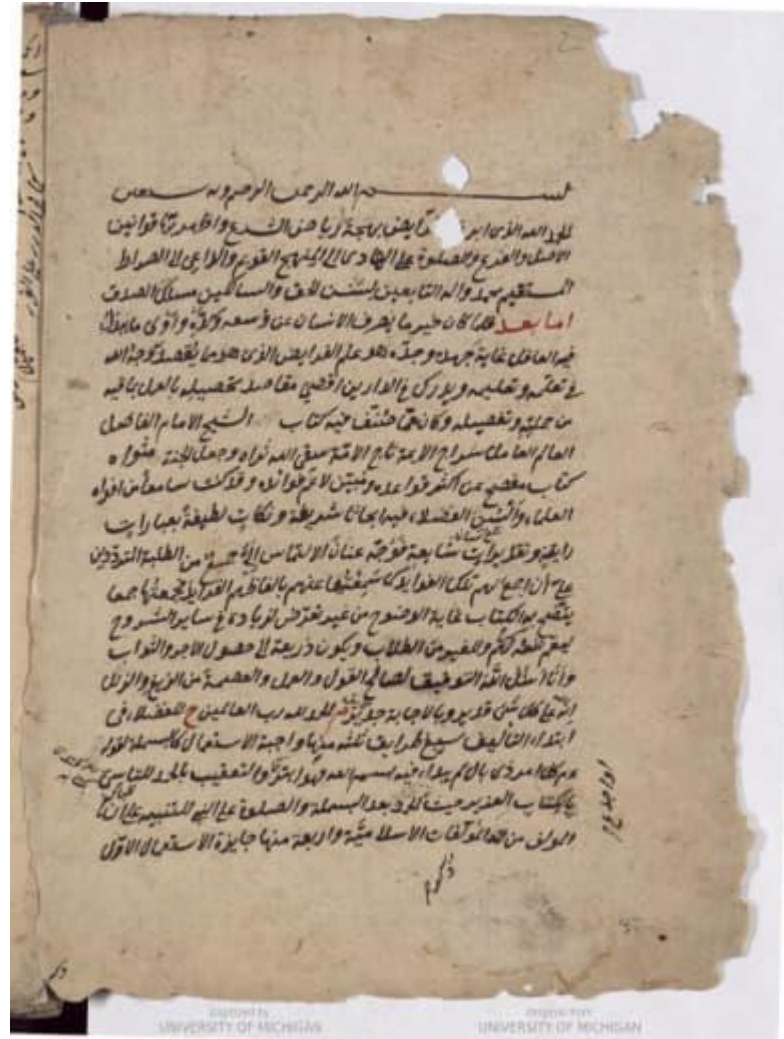 بسم الله الرحمن الرحيم وبه نستعين
الحمد لله الذي رياض الشرع واظهر قوانين
الاصل والفرع والصلوة على الهادى الى المنهج القويم والداعى الى الصراط
المستقيم محمد واله التابعين لسنن الحق والسالكين مسالك الصدق
اما بعد فلما كان خير ما يصرف الانسان عن وسعه وكده واولى ما يبذل
فيه العاقل غاية جهده وجده هو علم الفرايض الذى هو مما يقصد وجه الله
فى تعلمه وتعليمه ويدرك فى الدارين اقصى مقاصد تحصيله بالعمل بما فيه
من جمله وتفصيله وكان مما صنف فيه كتاب الشيخ الامام الفاضل
العالم العامل سراج الامة تاج الائمة سقى الله ثراه وجعل الجنة مثواه
كتاب مفصح عن اكثر قواعده ومبين لاعم فوائده وقد كنت سامعا من افواه
العلماء والسن الفضلاء فيه ابحاثا شريفة ونكات لطيفة بعبارات
رايقة وتقريرات شايعة فوجه عنان الالتماس الى من الطلبة المترددين
على ان اجمع لهم تلك الفوايد كما سمعتها عنهم بالفاظهم الفرايد فجمعتها جمعا
يتضح به الكتاب غاية الوضوح من غير تعرض لزيادة فى ساير الشروح
ليعم نفعه لكم وللغير من الطلاب ويكون ذريعة الى حصول الاجر والثواب
وانا اسئل الله التوفيق لصالح القول والعمل والعصمة من الزيغ والزلل
انه على كل شئ قدير وبالاجابة جدير قوله الحمد لله رب العالمين للفضلاء فى
ابتداء التأليف سبع طرايق ثلثة منها واجبة الاستعمال كالبسملة لقوله
كل امر ذى بال لم يبدا فيه ببسم الله فهو ابتر والتعقيب بالحمد للتاسى
بالكتاب العزيز حيث الحمد بعد البسملة والصلوة على النبى للتنبيه على ان
المولف من المؤلفات الاسلامية واربعة منها جايزة الاستعمال الاول
Digitized by
UNIVERSITY OF MICHIGAN
Original from
UNIVERSITY OF MICHIGAN